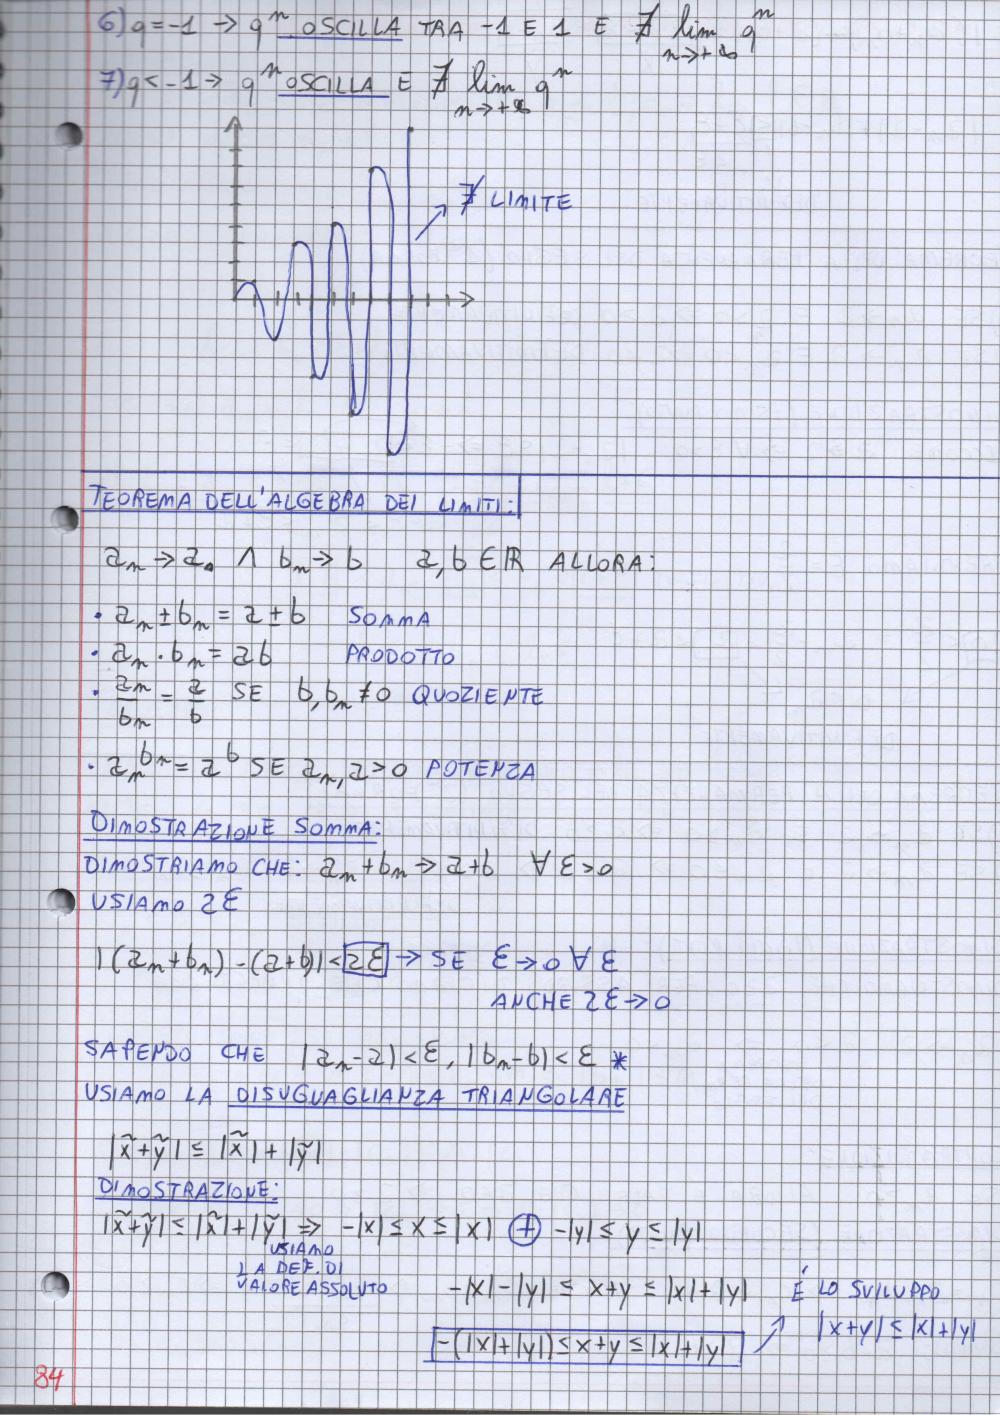 6) q=-1 → qⁿ OSCILLA TRA -1 E 1 E ∄ lim qⁿ
n→+∞
7) q<-1 → qⁿ OSCILLA E ∄ lim qⁿ
n→+∞
∄ LIMITE
TEOREMA DELL'ALGEBRA DEI LIMITI:
aₙ → a ∧ bₙ → b a,b ∈ ℝ ALLORA:
• aₙ ± bₙ = a ± b SOMMA
• aₙ · bₙ = ab PRODOTTO
• aₙ/bₙ = a/b SE b,bₙ ≠ 0 QUOZIENTE
• aₙ^bₙ = a^b SE aₙ,a > 0 POTENZA
DIMOSTRAZIONE SOMMA:
DIMOSTRIAMO CHE: aₙ+bₙ → a+b ∀ ε>0
USIAMO 2ε
|(aₙ+bₙ)-(a+b)| < 2ε → SE ε→0 ∀ ε
ANCHE 2ε→0
SAPENDO CHE |aₙ-a|<ε, |bₙ-b|<ε *
USIAMO LA DISUGUAGLIANZA TRIANGOLARE
|x̃+ỹ| ≤ |x̃|+|ỹ|
DIMOSTRAZIONE:
|x̃+ỹ| ≤ |x̃|+|ỹ| ⇒ -|x| ≤ x ≤ |x| ⊕ -|y| ≤ y ≤ |y|
USIAMO
LA DEF. DI
VALORE ASSOLUTO
-|x|-|y| ≤ x+y ≤ |x|+|y|
-(|x|+|y|) ≤ x+y ≤ |x|+|y|
É LO SVILUPPO
|x+y| ≤ |x|+|y|
84